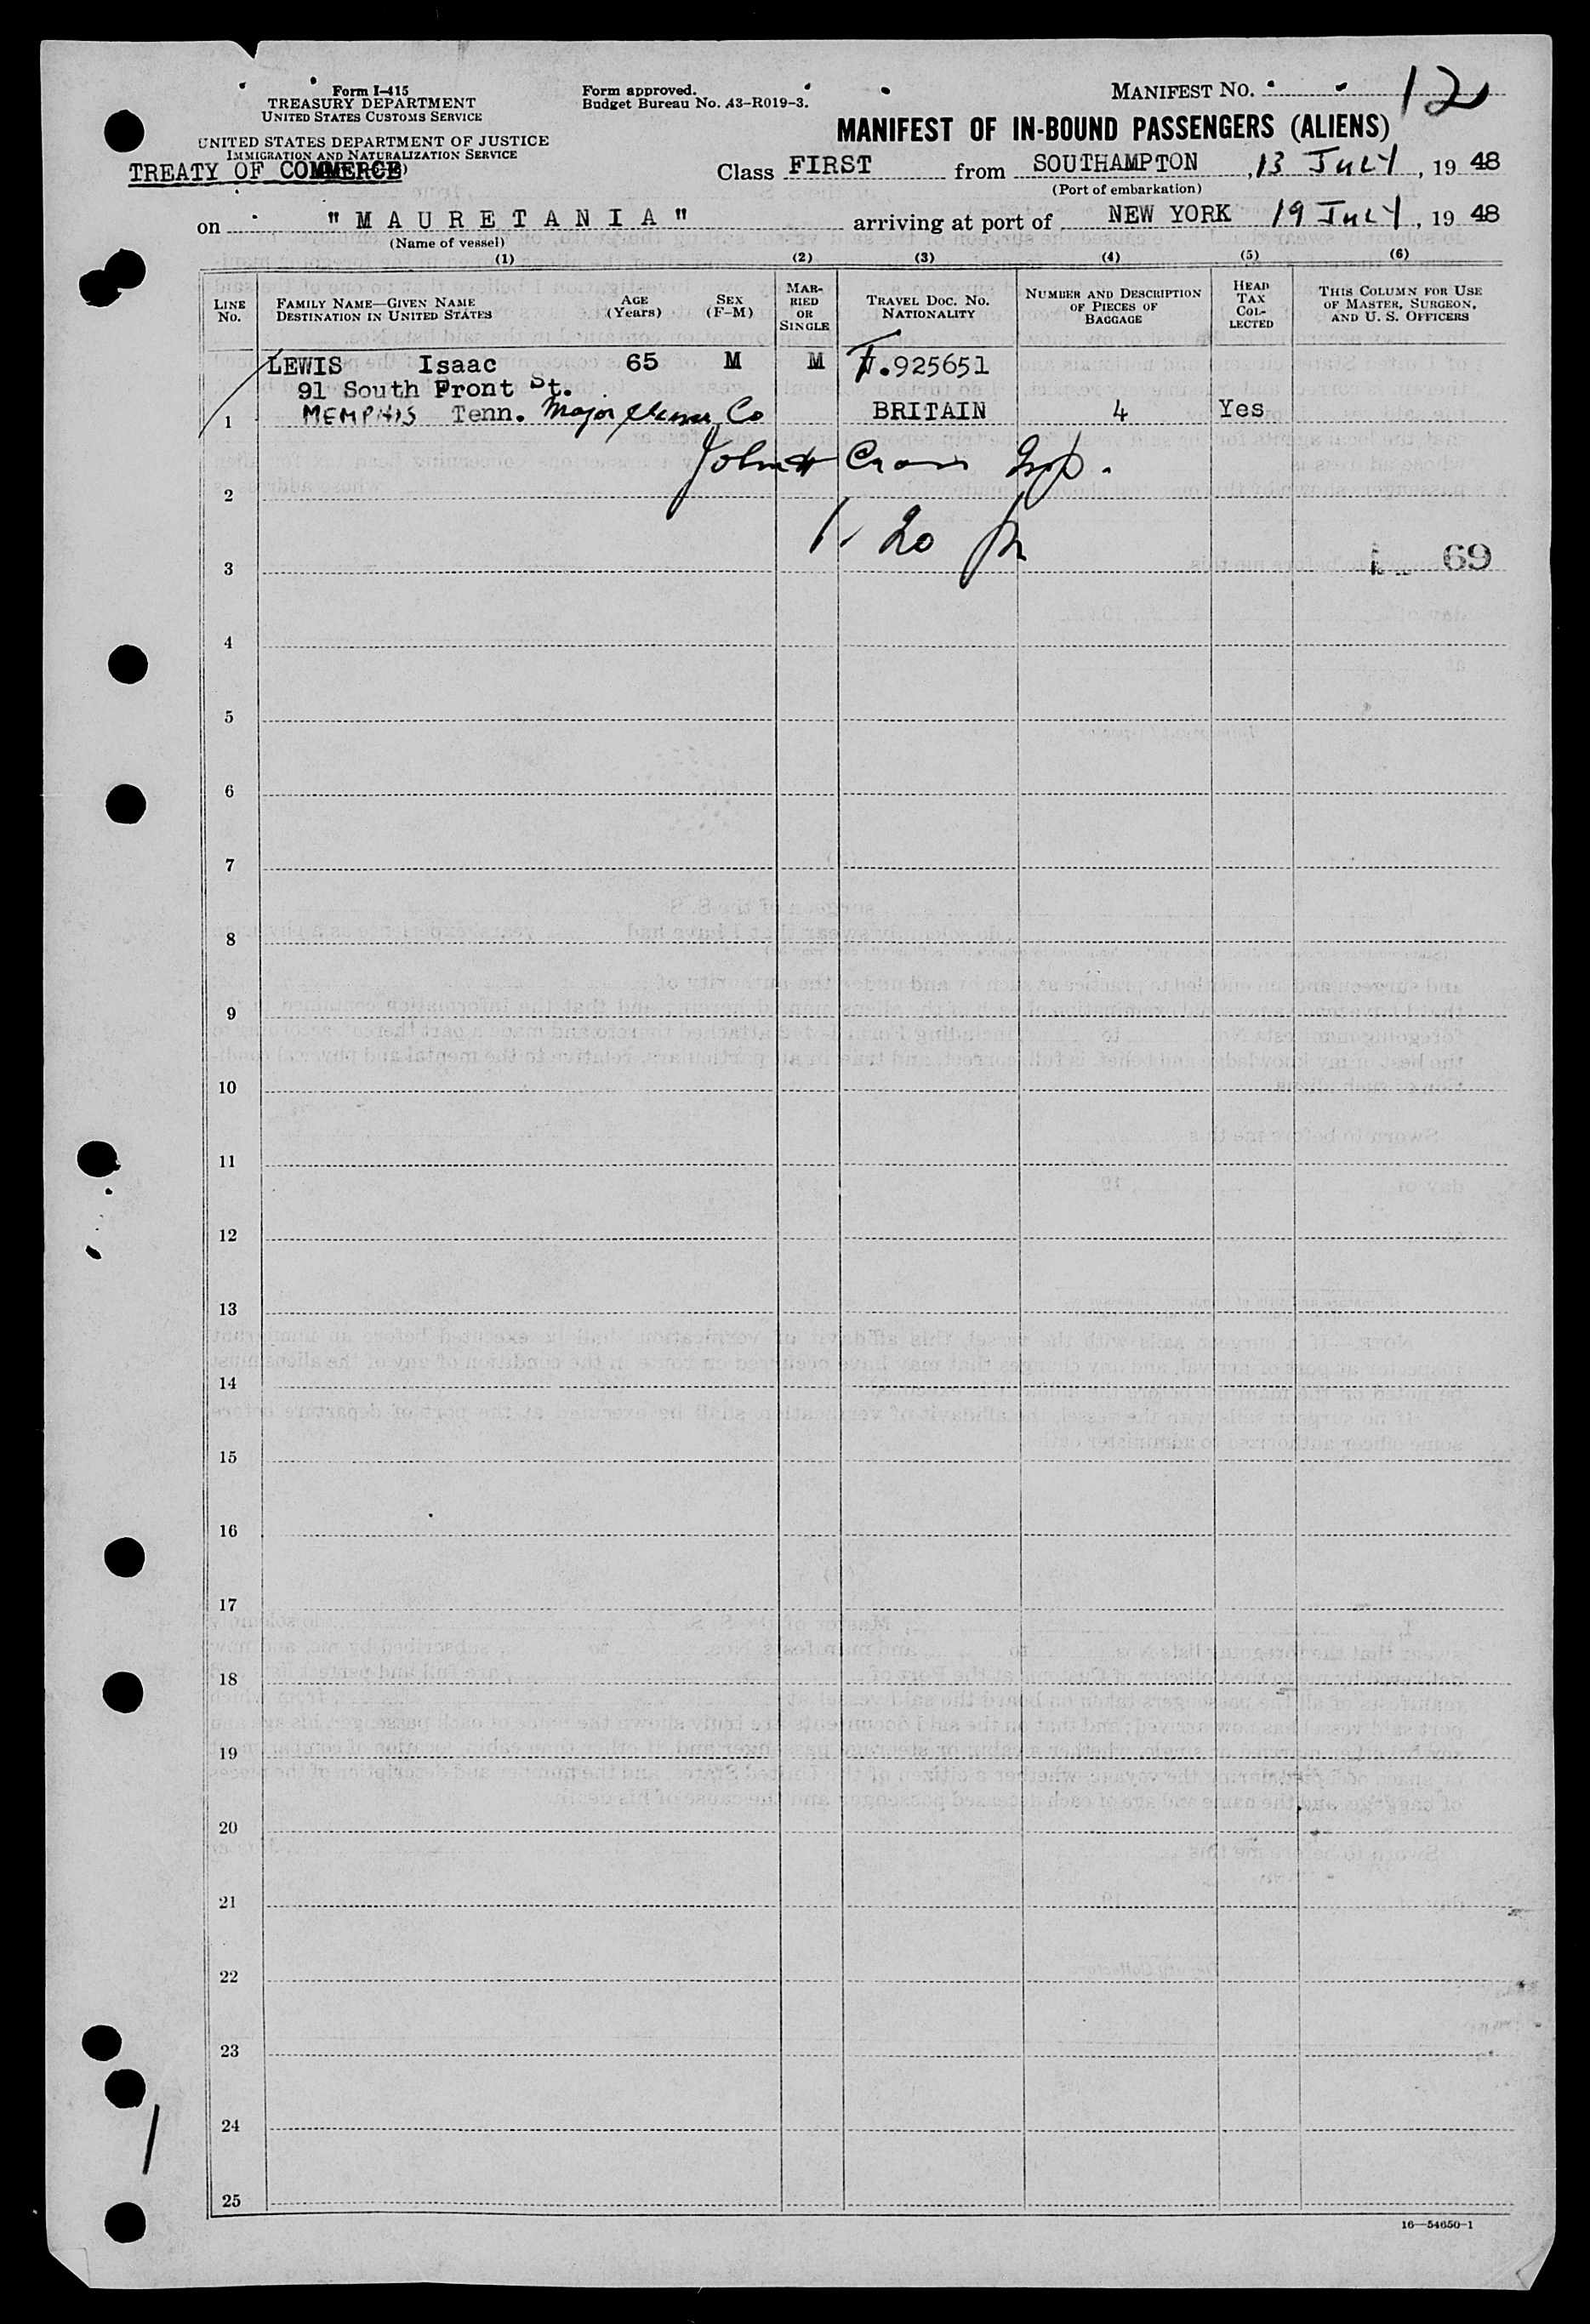 Form I-415
TREASURY DEPARTMENT
UNITED STATES CUSTOMS SERVICE
UNITED STATES DEPARTMENT OF JUSTICE
IMMIGRATION AND NATURALIZATION SERVICE
TREATY OF COMMERCE
Form approved.
Budget Bureau No. 43-R019-3.
MANIFEST NO. 12
MANIFEST OF IN-BOUND PASSENGERS (ALIENS)
Class FIRST from SOUTHAMPTON, 13 JULY, 19 48
(Port of embarkation)
on "MAURETANIA" arriving at port of NEW YORK 19 JULY, 19 48
(Name of vessel)
(1) (2) (3) (4) (5) (6)
LINE NO.
FAMILY NAME—GIVEN NAME
DESTINATION IN UNITED STATES
AGE (Years)
SEX (F-M)
MARRIED OR SINGLE
TRAVEL DOC. NO.
NATIONALITY
NUMBER AND DESCRIPTION OF PIECES OF BAGGAGE
HEAD TAX COLLECTED
THIS COLUMN FOR USE OF MASTER, SURGEON, AND U. S. OFFICERS
LEWIS Isaac 65 M M .925651
91 South Front St.
1 MEMPHIS Tenn. Major Co BRITAIN 4 Yes
John
2
1. 20
3 69
4
5
6
7
8
9
10
11
12
13
14
15
16
17
18
19
20
21
22
23
24
25
16—54650-1